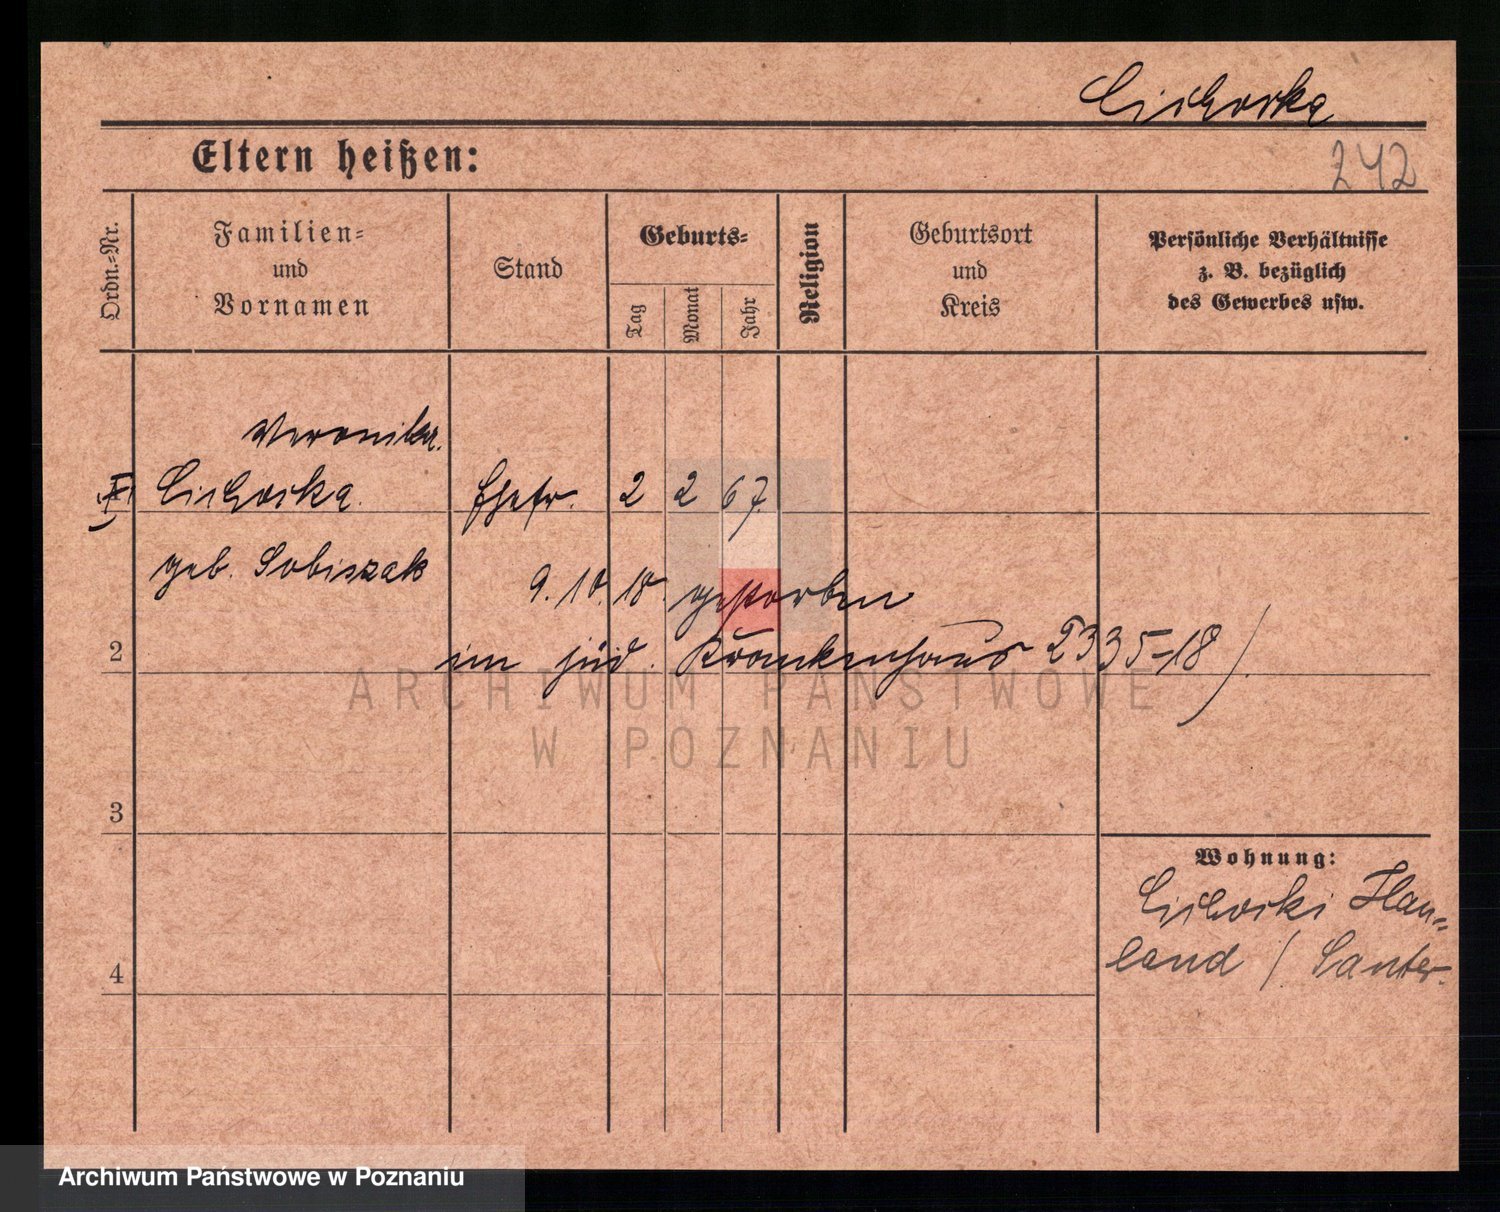 Cichorka
Eltern heißen:
242
Ordn.=Nr.
Familien=
und
Vornamen
Stand
Geburts=
Tag
Monat
Jahr
Religion
Geburtsort
und
Kreis
Persönliche Verhältnisse
z. B. bezüglich
des Gewerbes usw.
Veronika
Cichorka Ehefr. 2 2 67.
geb. Sobiszak
9. 10. 18. gestorben
2 im jüd. Krankenhaus 2335=18
ARCHIWUM PAŃSTWOWE
W POZNANIU
3
Wohnung:
Cichorki
land / Santer
4
Archiwum Państwowe w Poznaniu